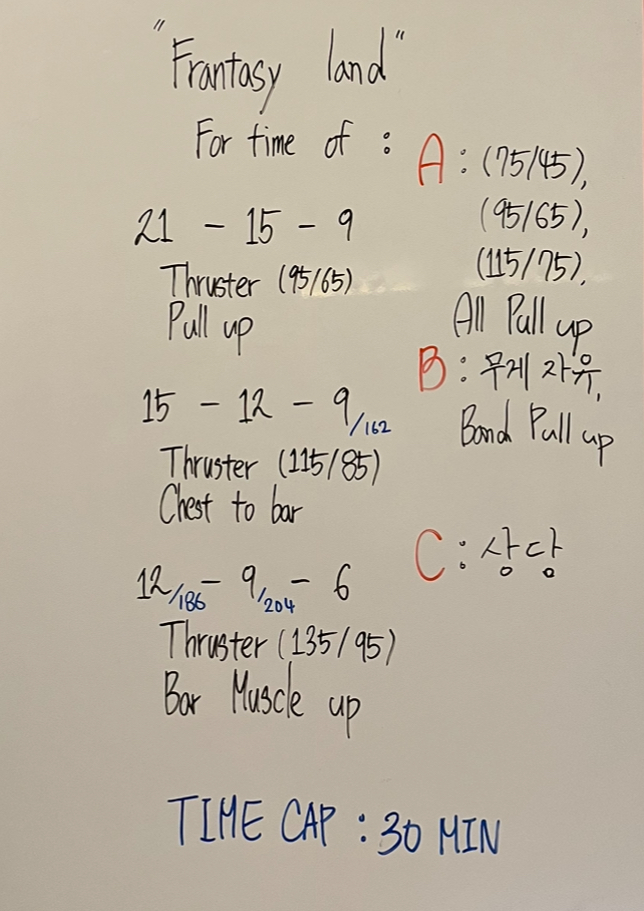 "Frantasy land"
For time of :
21 - 15 - 9
Thruster (95/65)
Pull up
15 - 12 - 9 /162
Thruster (115/85)
Chest to bar
12 /186 - 9 /204 - 6
Thruster (135/95)
Bar Muscle up
A : (75/45),
(95/65),
(115/75),
All Pull up
B : 무게 자유,
Band Pull up
C : 상담
TIME CAP : 30 MIN